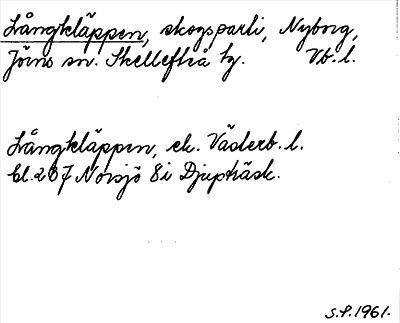 Långkläppen, skogsparti, Nyborg,
Jörns sn. Skellefteå tg. Vb. l.
Långkläppen, ek. Västerb. l.
bl. 207 Norsjö 8i Djupträsk.
S.P. 1961.